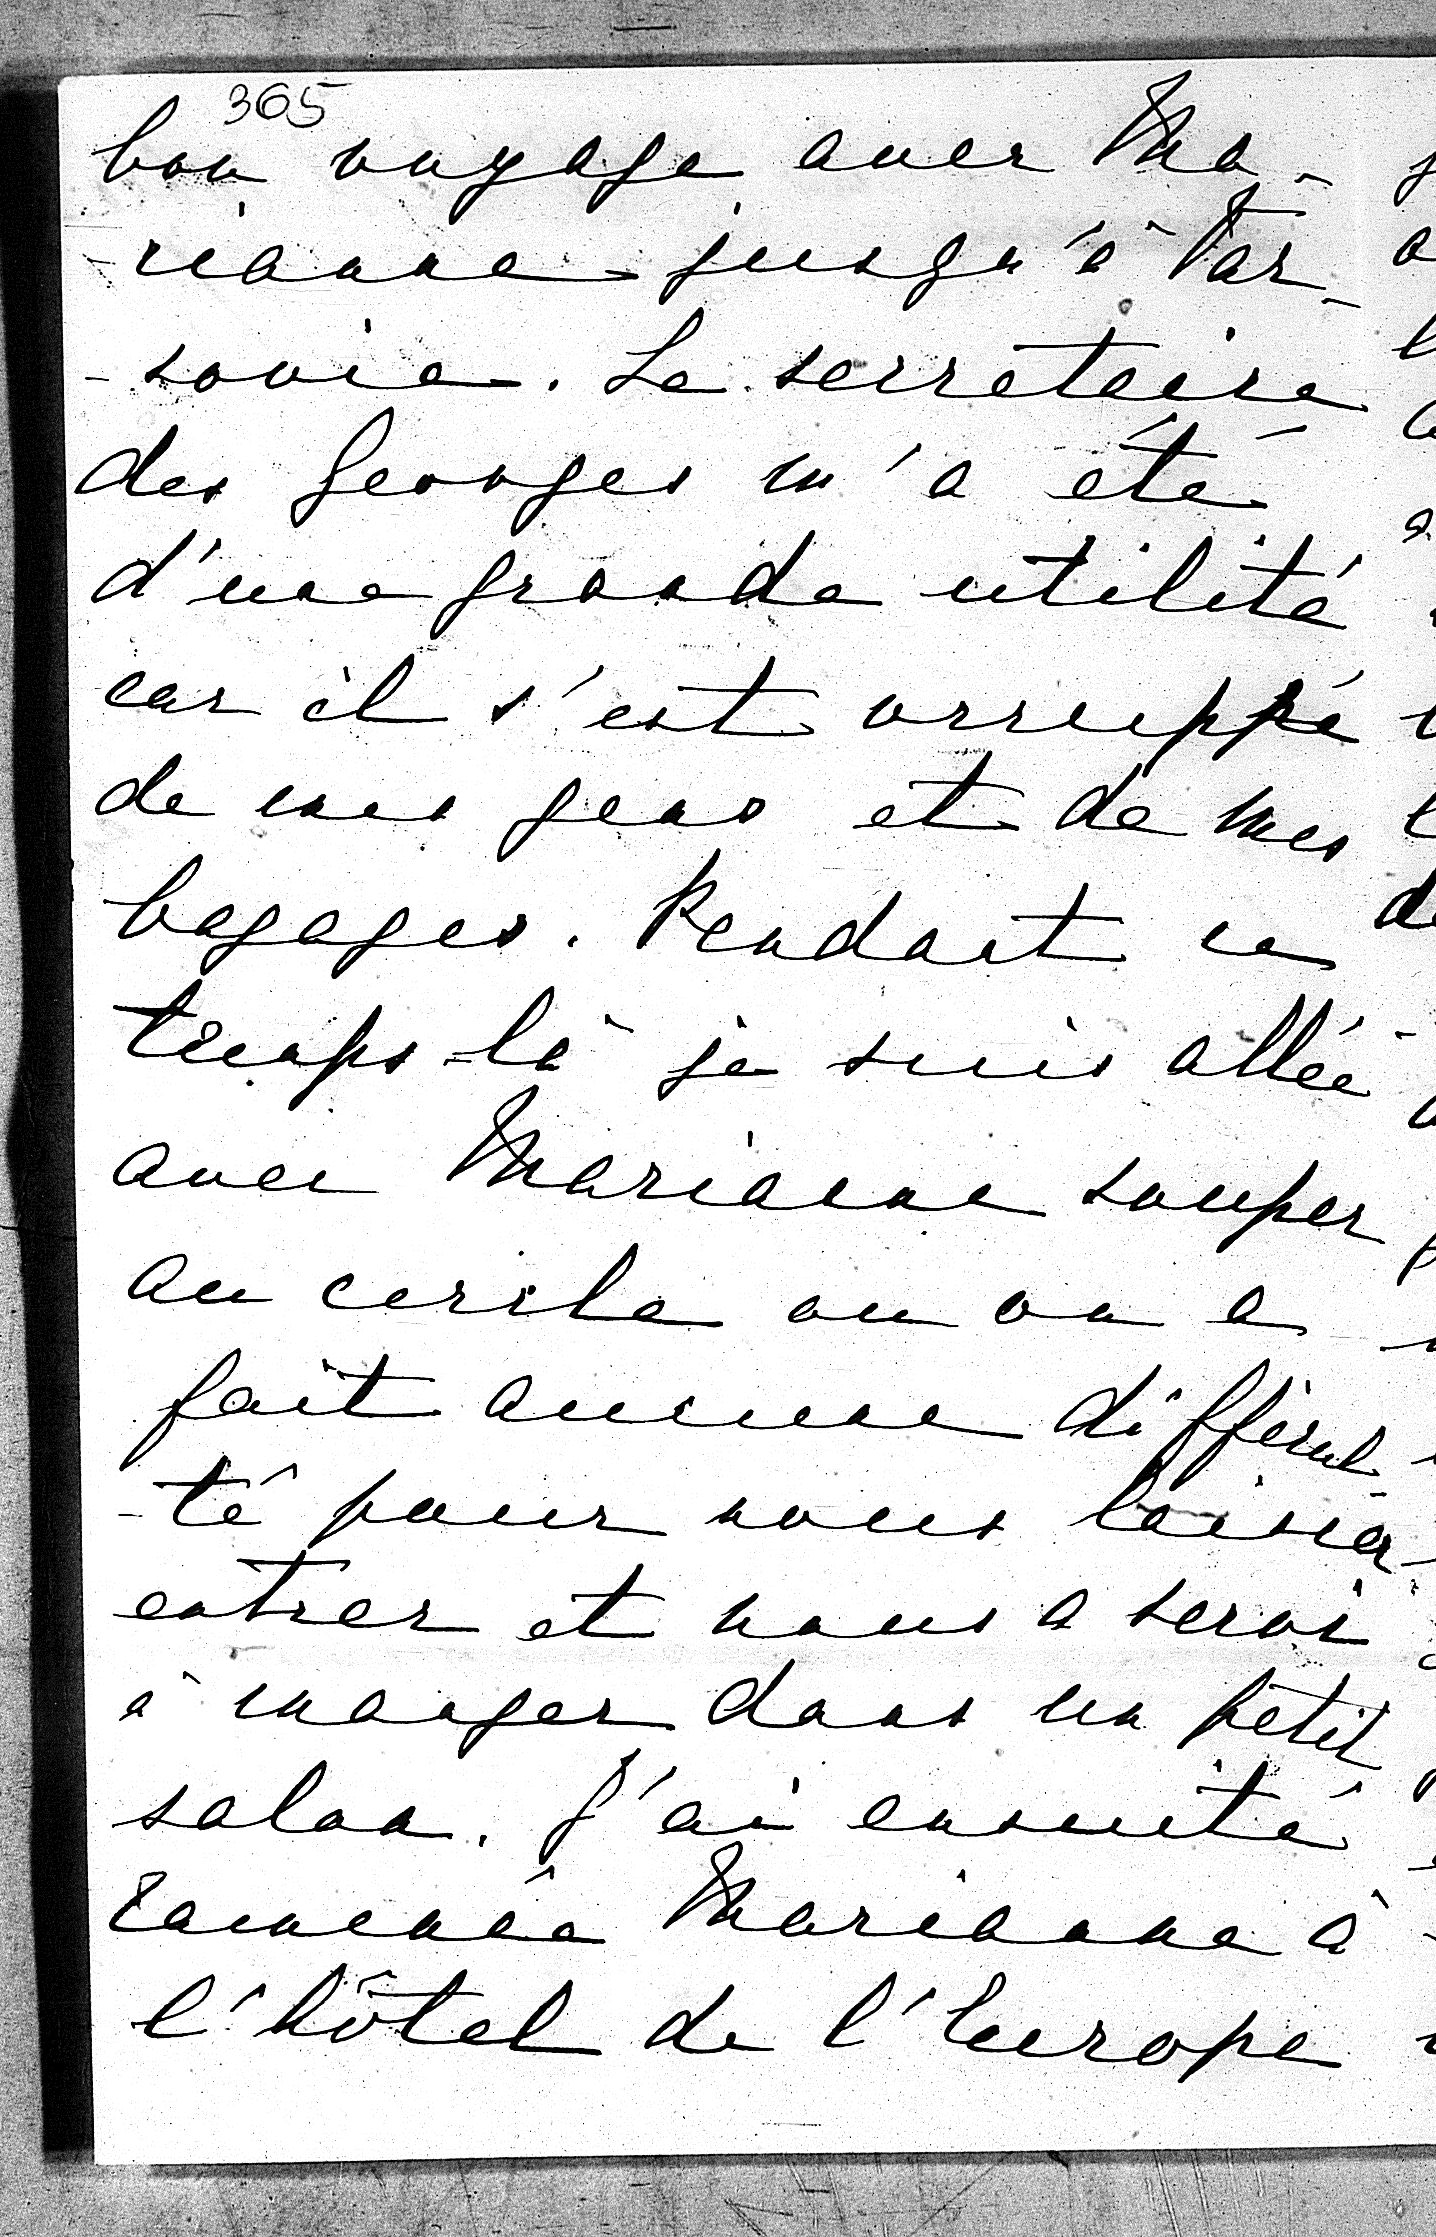 365
bon voyage avec Ma-
-rianne jusqu'à Var-
-sovie. Le secrétaire
des Georges m'a été
d'une grande utilité
car il s'est occuppé
de mes gens et de mes
bagages. Pendant ce
temps-là je suis allée
avec Marianne souper
au cercle ou on a
fait aucune difficul-
-té pour nous laisser
entrer et nous a servi
à manger dans un petit
salon. J'ai ensuite
ramenée Marianne à
l'hôtel de l'Europe